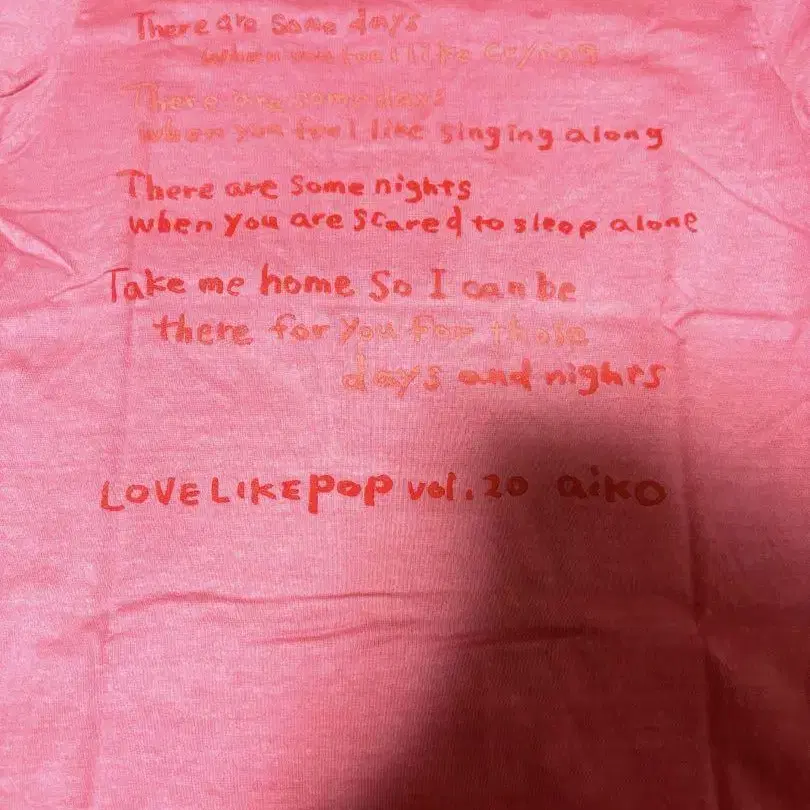 There are some days
when you feel like crying
There are some days
when you feel like singing along
There are some nights
when you are scared to sleep alone
Take me home So I can be
there for you for those
days and nights
LOVE LIKE POP vol.20 aiko